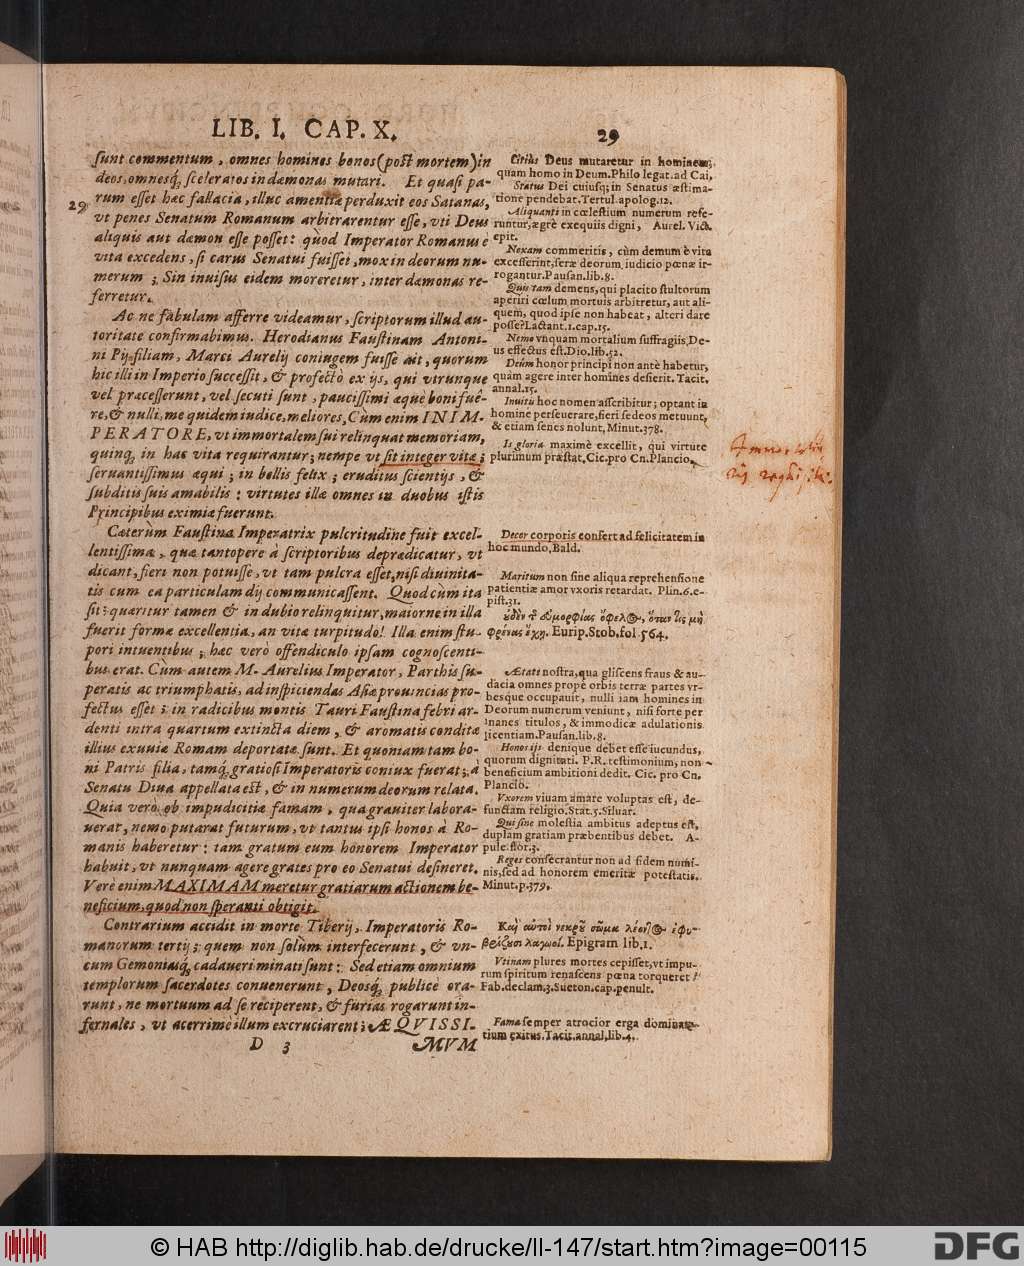 LIB. I. CAP. X. 29
sunt commentum, omnes homines bonos (post mortem) in
deos, omnesq; sceleratos in dæmonas mutari. Et quasi pa-
29 rum esset hæc fallacia, illuc amentiæ perduxit eos Satanas,
vt penes Senatum Romanum arbitrarentur esse, vti Deus
aliquis aut dæmon esse posset: quòd Imperator Romanus è
vita excedens, si carus Senatui fuisset, mox in deorum nu-
merum; Sin inuisus eidem moreretur, inter dæmonas re-
ferretur.
Ac ne fabulam afferre videamur, scriptorum illud au-
toritate confirmabimus. Herodianus Faustinam Antoni-
ni Pij filiam, Marci Aurelij coniugem fuisse ait, quorum
hic illi in Imperio successit, & profectò ex ijs, qui vtrunque
vel præcesserunt, vel secuti sunt, paucissimi æquè boni fuê-
re, & nulli, me quidem iudice, meliores. Cùm enim IN IM-
PERATORE, vt immortalem sui relinquat memoriam,
quinq; in hac vita requirantur; nempe vt sit integer vitæ;
seruantissimus æqui; in bellis felix; eruditus scientijs, &
subditis suis amabilis: virtutes illæ omnes in duobus istis
Principibus eximiæ fuerunt.
Cæterùm Faustina Imperatrix pulcritudine fuit excel-
lentissima, quæ tantopere à scriptoribus deprædicatur, vt
dicant, fieri non potuisse, vt tam pulcra esset, nisi diuinita-
tis cum ea particulam dij communicassent. Quod cùm ita
sit: quæritur tamen & in dubio relinquitur, maiorne in illa
fuerit formæ excellentia, an vitæ turpitudo! Illa enim stu-
pori intuentibus; hæc verò offendiculo ipsam cognoscenti-
bus erat. Cùm autem M. Aurelius Imperator, Parthis su-
peratis ac triumphatis, ad inspiciendas Asiæ prouincias pro-
fectus esset; in radicibus montis Tauri Faustina febri ar-
denti intra quartum extincta diem, & aromatis condita
illius exuuiæ Romam deportatæ sunt. Et quoniam tam bo-
ni Patris filia, tamq; gratiosi Imperatoris coniux fuerat; à
Senatu Diua appellata est, & in numerum deorum relata.
Quia verò ob impudicitiæ famam, qua grauiter labora-
uerat, nemo putarat futurum, vt tantus ipsi honos à Ro-
manis haberetur: tam gratum eum honorem Imperator
habuit, vt nunquam agere grates pro eo Senatui desineret.
Verè enim MAXIMAM meretur gratiarum actionem be-
neficium, quod non speranti obtigit.
Contrarium accidit in morte Tiberij, Imperatoris Ro-
manorum tertij; quem non solùm interfecerunt, & vn-
cum Gemoniasq; cadaueri minati sunt: Sed etiam omnium
templorum sacerdotes conuenerunt, Deosq; publicè ora-
runt, ne mortuum ad se reciperent, & furias rogarunt in-
fernales, vt acerrimè illum excruciarent; ÆQVISSI-
D 3 MVM
Citiùs Deus mutaretur in hominem;
quam homo in Deum. Philo legat. ad Cai.
Status Dei cuiusq; in Senatus æstima-
tione pendebat. Tertul. apolog. 12.
Aliquanti in cœlestium numerum refe-
runtur, ægrè exequiis digni, Aurel. Vict.
epit.
Noxam commeritis, cùm demum è vita
excesserint, seræ deorum iudicio pœnæ ir-
rogantur. Pausan. lib. 8.
Quis tam demens, qui placito stultorum
aperiri cœlum mortuis arbitretur, aut ali-
quem, quod ipse non habeat, alteri dare
posse? Lactant. 1. cap. 15.
Nemo vnquam mortalium suffragiis De-
us effectus est. Dio. lib. 52.
Deûm honor principi non antè habetur,
quàm agere inter homines desierit. Tacit.
annal. 15.
Inuitis hoc nomen asscribitur; optant in
homine perseuerare, fieri se deos metuunt,
& etiam senes nolunt. Minut. 378.
Is gloria maximè excellit, qui virtute
plurimùm præstat. Cic. pro Cn. Plancio.
Decor corporis confert ad felicitatem in
hoc mundo. Bald.
Maritum non sine aliqua reprehensione
patientiæ amor vxoris retardat. Plin. 6. e-
pist. 31.
φρένας ἔχῃ. Eurip. Stob. fol. 564.
Ætate nostra, qua gliscens fraus & au-
dacia omnes propè orbis terræ partes vr-
besque occupauit, nulli iam homines in
Deorum numerum veniunt, nisi forte per
inanes titulos, & immodicæ adulationis
licentiam. Pausan. lib. 8.
Honos ijs denique debet esse iucundus,
quorum dignitati. P. R. testimonium, non
beneficium ambitioni dedit. Cic. pro Cn.
Plancio.
Vxorem viuam amare voluptas est, de-
functam religio. Stat. 5. Siluar.
Qui sine molestia ambitus adeptus est,
duplam gratiam præbentibus debet. A-
pule. flor. 3.
Reges consecrantur non ad fidem numi-
nis, sed ad honorem emeritæ potestatis.
Minut. p. 379.
Epigram lib. 1.
Vtinam plures mortes cepisset, vt impu-
rum spiritum renascens pœna torqueret!
Fab. declam. 3. Sueton. cap. penult.
Fama semper atrocior erga dominan-
tium exitus. Tacit. annal. lib. 4.
© HAB http://diglib.hab.de/drucke/ll-147/start.htm?image=00115
DFG